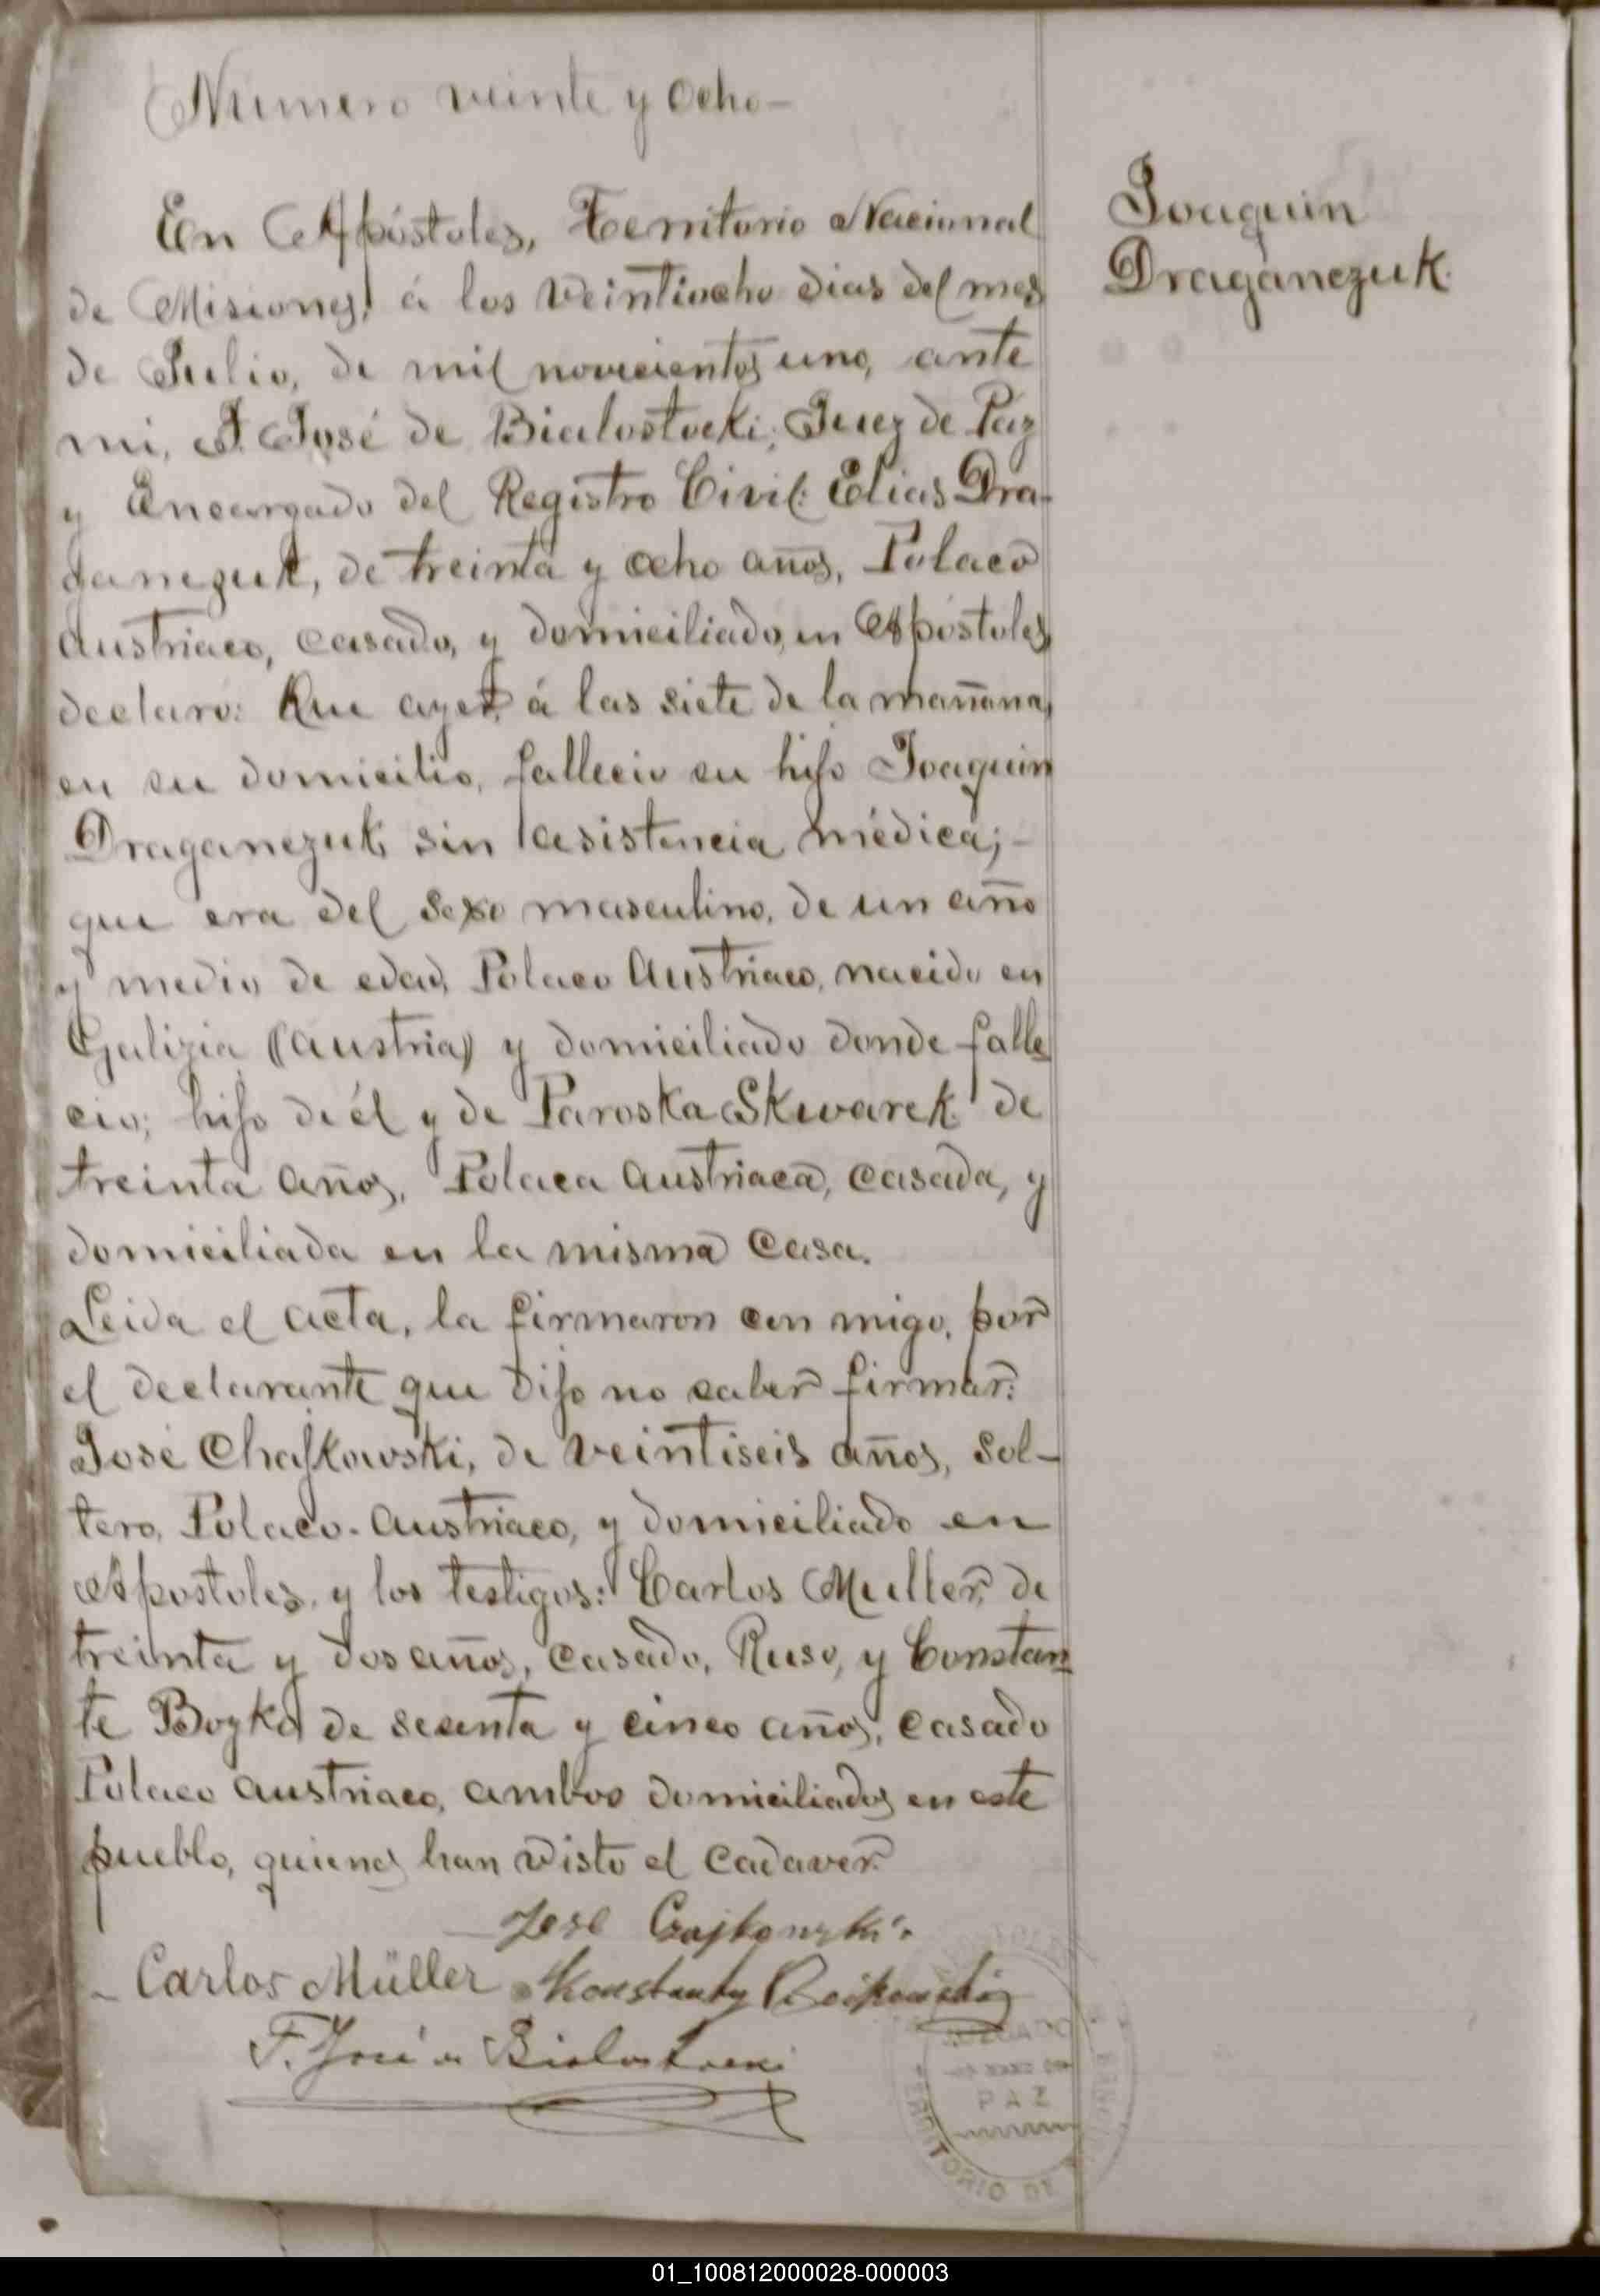 Número veinte y ocho–
Joaquin
Draganczuk.
En Apóstoles, Territorio Nacional
de Misiones, á los veintiocho dias del mes
de Julio, de mil novecientos uno, ante
mi, F. José de Bialostocki, Juez de Paz
y Encargado del Registro Civil: Elias Dra-
ganczuk, de treinta y ocho años, Polaco
Austriaco, casado, y domiciliado, en Apóstoles
declaró: Que ayer, á las siete de la mañana,
en su domicilio, falleció su hijo Joaquin
Draganczuk, sin asistencia médica; –
que era del sexo masculino, de un año
y medio de edad, Polaco Austriaco, nacido en
Galizia (Austria) y domiciliado donde falle
ció; hijo de él y de Paroska Skwarek de
treinta años, Polaca Austriaca, casada, y
domiciliada en la misma casa.
Leida el acta, la firmaron con migo, por
el declarante que dijo no saber firmar:
José Chajkowski, de veintiseis años, Sol-
tero, Polaco-Austriaco, y domiciliado en
Apostoles, y los testigos: Carlos Muller, de
treinta y dos años, casado, Ruso, y Constan
te Boyko de sesenta y cinco años, casado
Polaco Austriaco, ambos domiciliados en este
pueblo, quienes han visto el cadaver.
José Czajkowski.
Carlos Müller Konstanty
F. José de Bialostocki
JUZGADO
PAZ
TERRITORIO DE
01_100812000028-000003